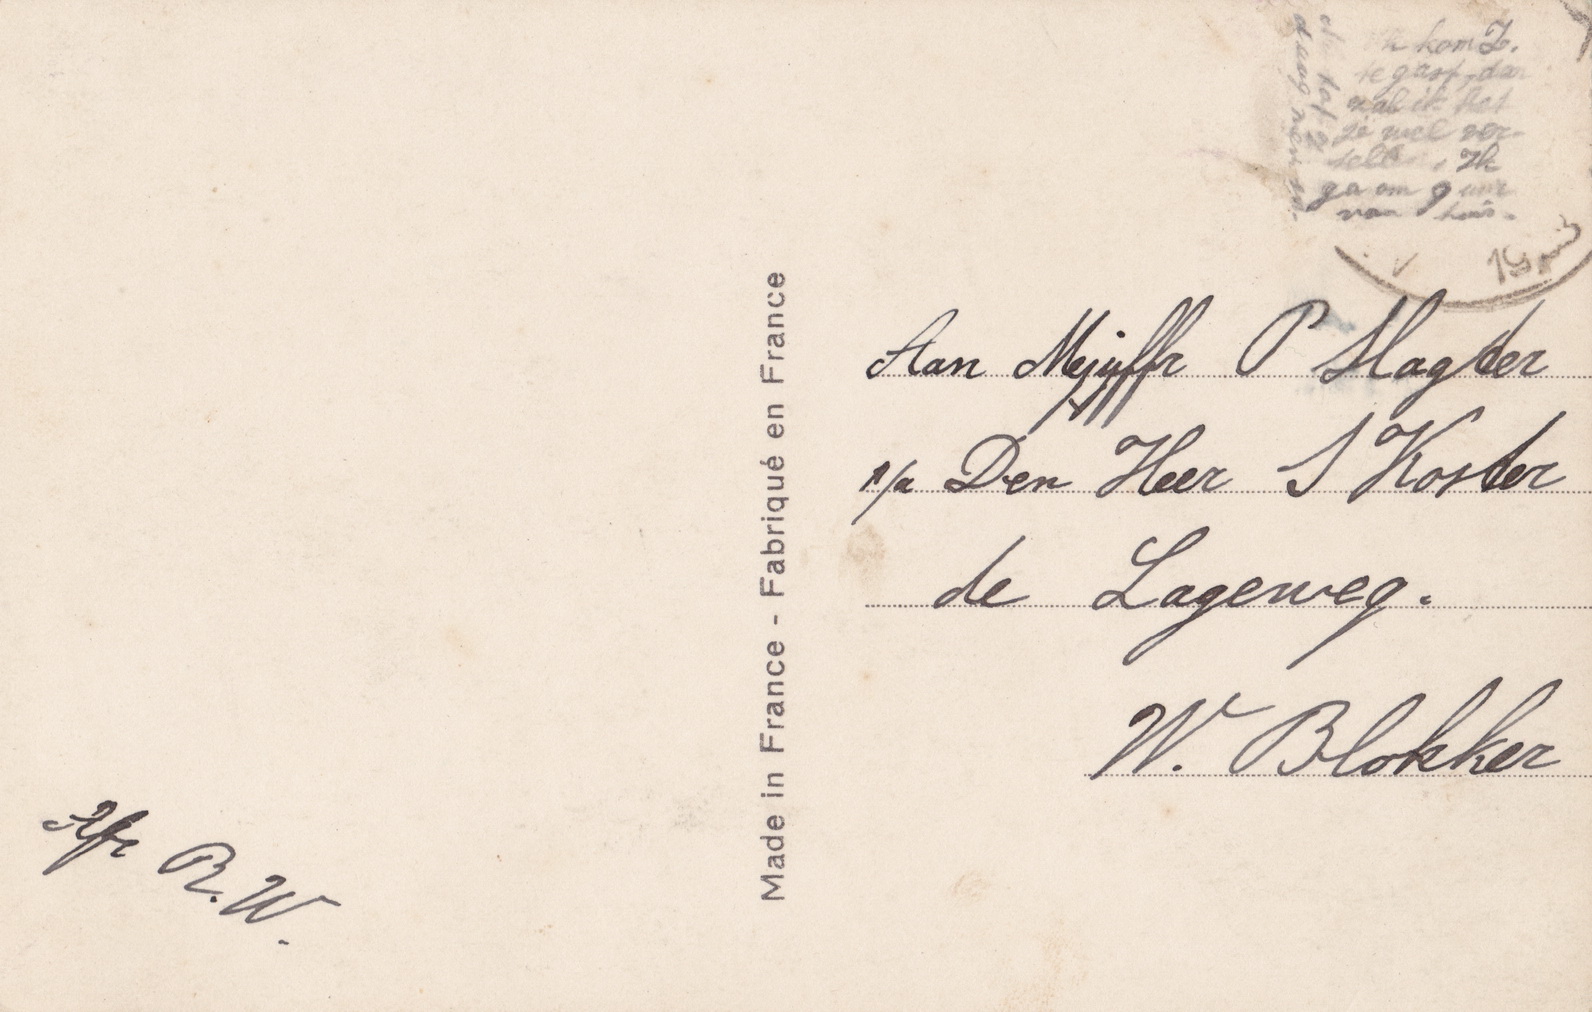 kom Z.
te gast, dan
zal ik het
je wel ver-
Ik
ga om 9 uur
van huis.
19
Aan Mejuffr P Slagter
p/a Den Heer S Koster
de Lageweg.
W. Blokker
Made in France - Fabriqué en France
Afz R. W.